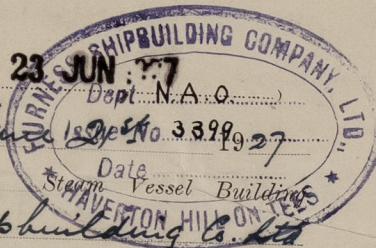 FURNESS SHIPBUILDING COMPANY, LTD.,
23 JUN
Dept N.A.O.
No 3399
1927
Date
Steam Vessel Building
HAVERTON HILL-ON-TEES
shipbuilding Co. Ltd